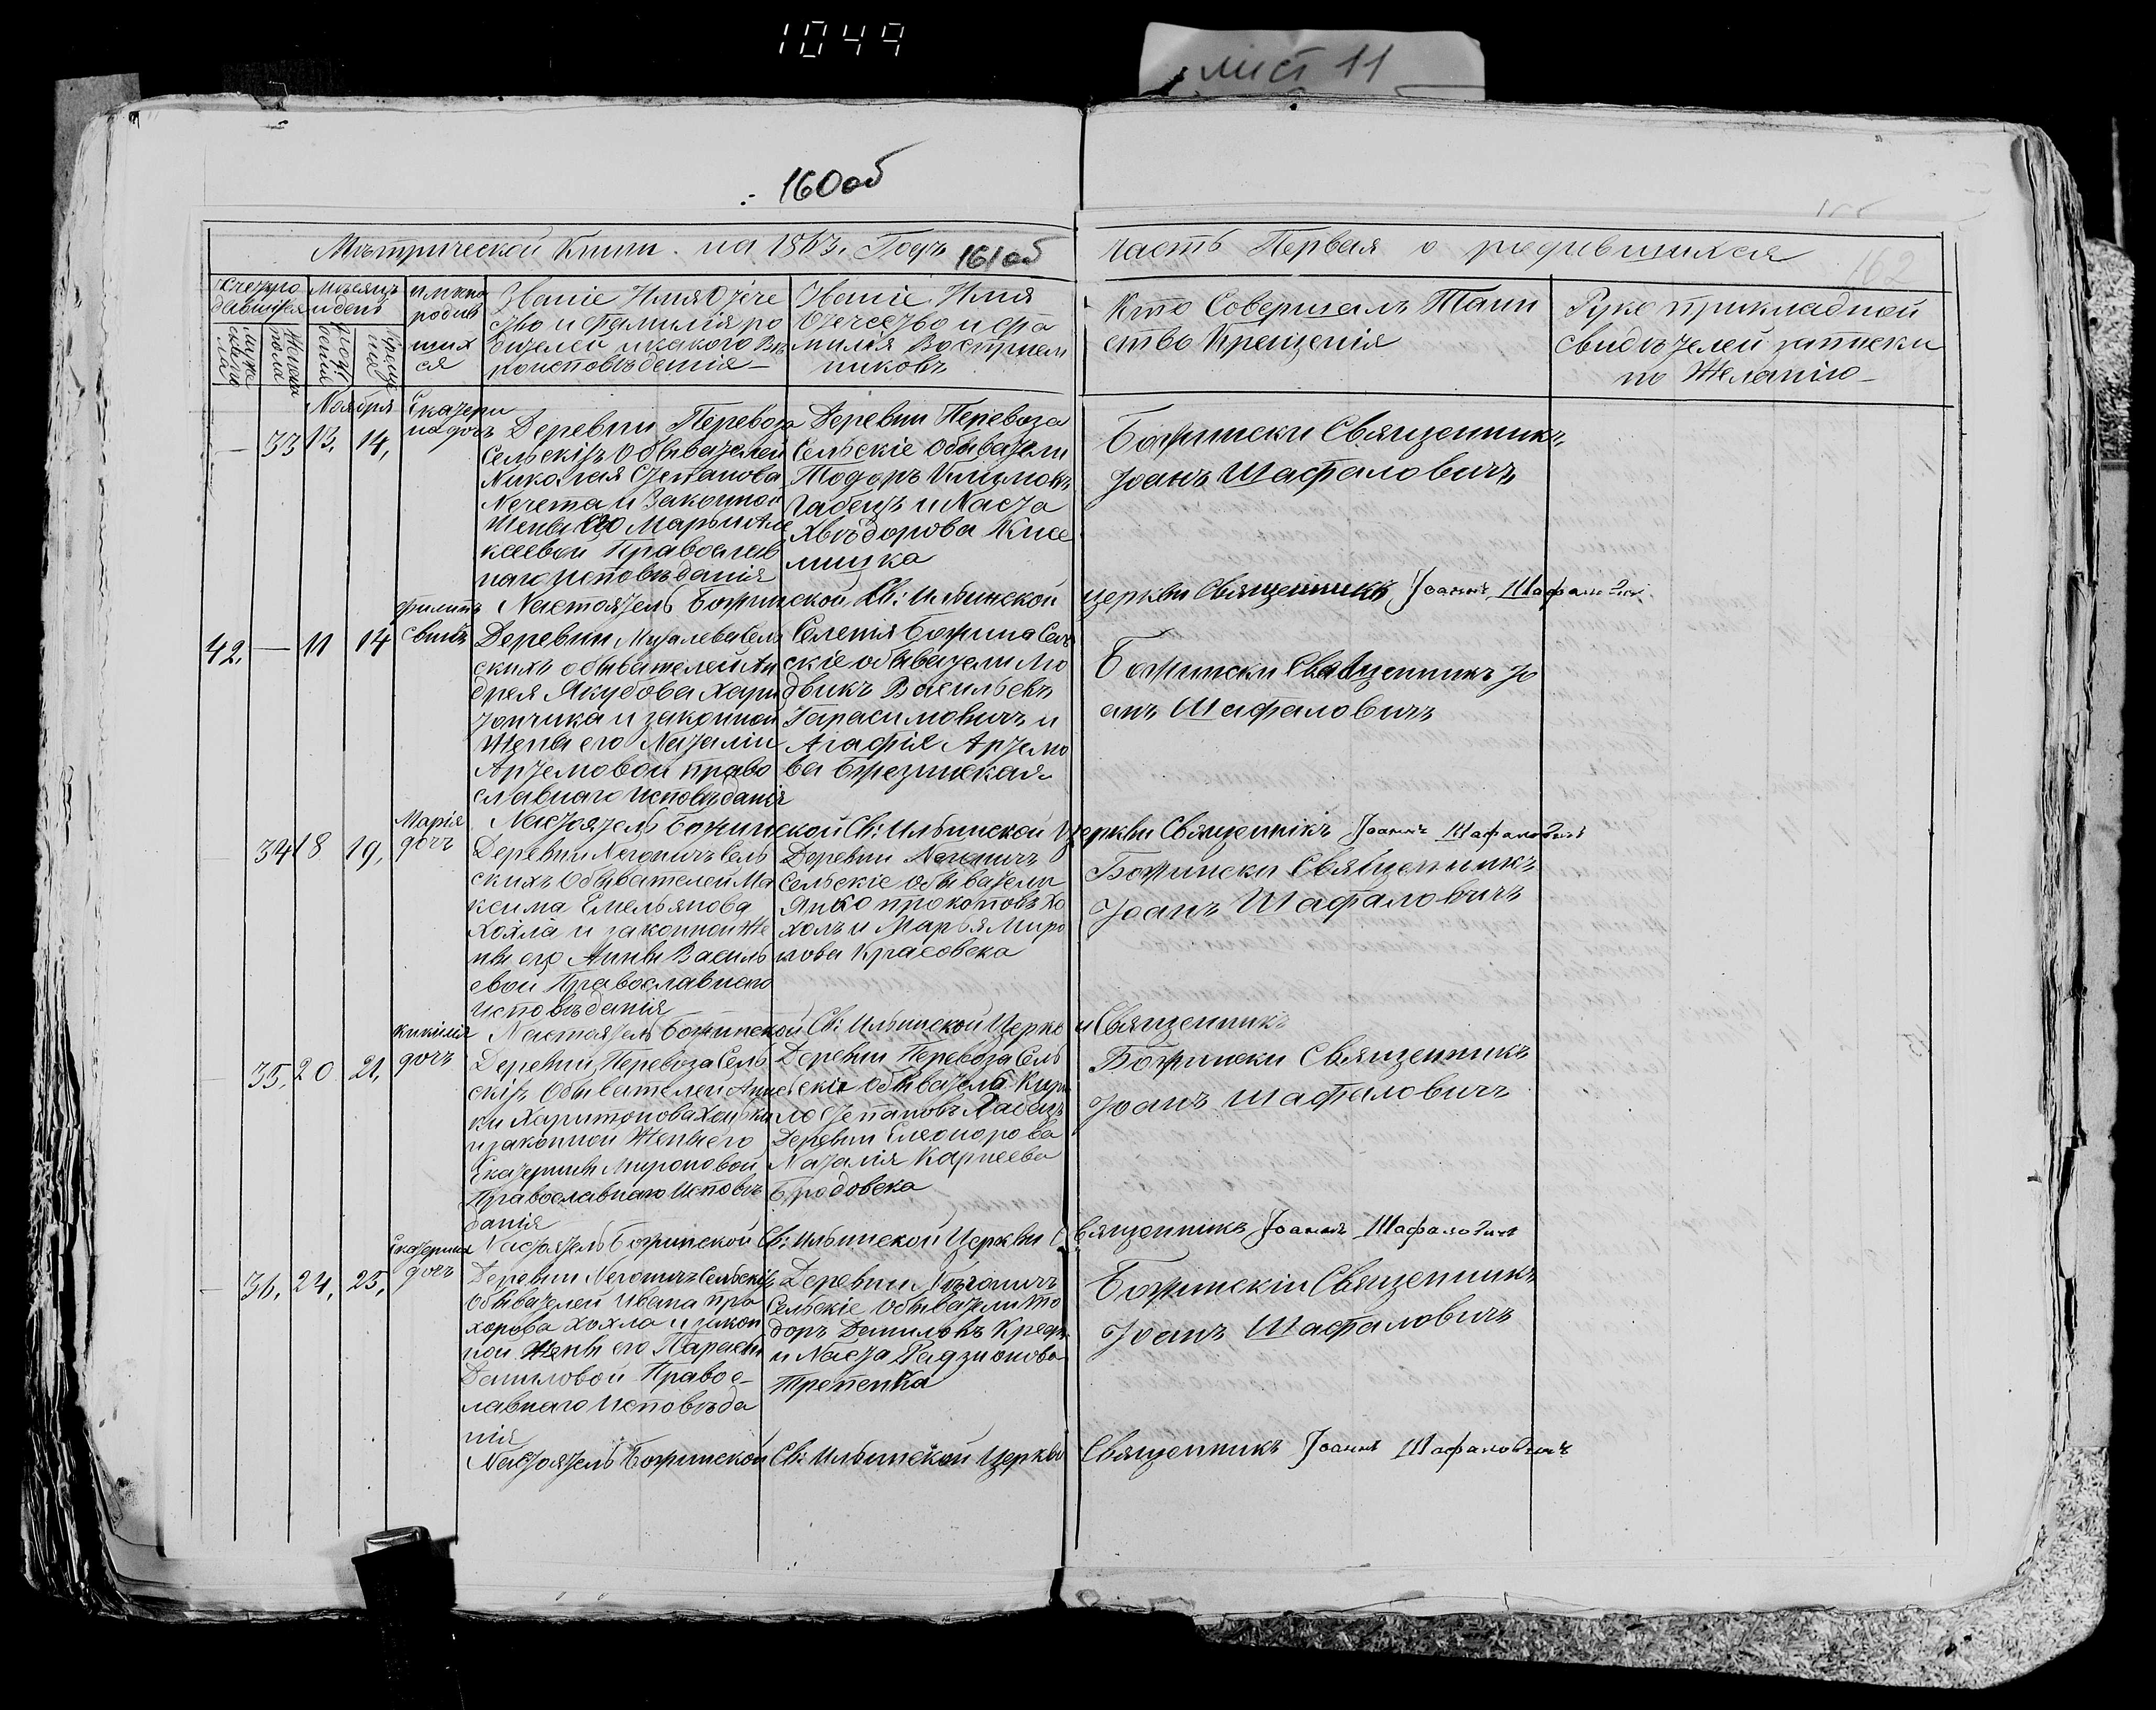 1049
лист 11
160об
Мътрической Книги на 1863. Годъ 161об
часть Первая о родившихся
162
Званіе Имя Отече
ство и Фамилія ро
дителей и какого Въ
роисповъденія
Званіе Имя
Отечество и фа
милія Воспріем
никовъ
Кто Совершалъ Таин
ство Крещенія
Руко прикладной
свидътелей записки
по Желанію
Ноября
33 13. 14,
Екатери
на дочь
Деревни Перевоза
Сельскіхъ Обывателей
Николая Степанова
и Законной
Жены Его Марьи Але
ксевой Православ
наго исповъданія
Деревни Перевоза
Сельскіе Обыватели
Тодоръ Климовъ
Габецъ и Наста
Хвъдорова
Божински Священникъ
Іоанъ Шафаловичъ
Настоятель Божинской Св: Ильинской церкви Священникъ Іоаннъ Шафаловичъ
42. — 11 14
Филипъ
сынъ
Деревни Сель
скихъ обывателей Ан
дрея Якубова Хари
тончика и законной
Жены его Наталіи
Артемовой право
славнаго исповъданія
Селенія Божина Сель
скіе обыватели Лю
двикъ Васильевъ
Гарасимовичъ и
Агафія Артемо
ва Березинская
Божински Священникъ Іо
анъ Шафаловичъ
Настоятель Божинской Св: Ильинской Церкви Священнікъ Іоаннъ Шафаловичъ
34 18 19,
Марія
дочь
Деревни Негоничъ Сель
скихъ Обывателей Ма
ксима Емельянова
Хохла и законной Же
ны его Анны Василь
евой Православнаго
Исповъданія
Деревни Негоничъ
Сельскіе обыватели
Янко прокоповъ Хо
холъ и Марья Миро
нова Красовска
Божински Священникъ
Іоанъ Шафаловичъ
Настоятель Божинской Св: Ильинской Церкви Священникъ
35, 20 21,
Кикилія
дочь
Деревни Перевоза Сель
скіхъ Обывателей
Харитонова
и законной Жены его
Екатерины Мироновой
Православнаго Исповъ
данія
Деревни Перевоза Сель
скіе обыватели Кири
ло Степановъ Габецъ
Деревни Елеонорова
Наталія Карнеева
Бродовска
Божински Священникъ
Іоанъ Шафаловичъ
Настоятель Божинской Св: Ильинской Церкви Священникъ Іоаннъ Шафаловичъ
— 36, 24, 25,
Екатерина
дочь
Деревни Негоничъ Сельскіхъ
Обывателей Ивана про
хорова Хохла и закон
ной Жены его Парасъи
Даниловой Правос-
лавнаго Исповъда
нія
Деревни Нъгоничъ
Сельскіе обыватели То
доръ Даниловъ
и Наста Радзионова
Трепенка
Божинскіи Священникъ
Іоанъ Шафаловичъ
Настоятель Божинской Св: Ильинской Церкви Священникъ Іоаннъ Шафаловичъ